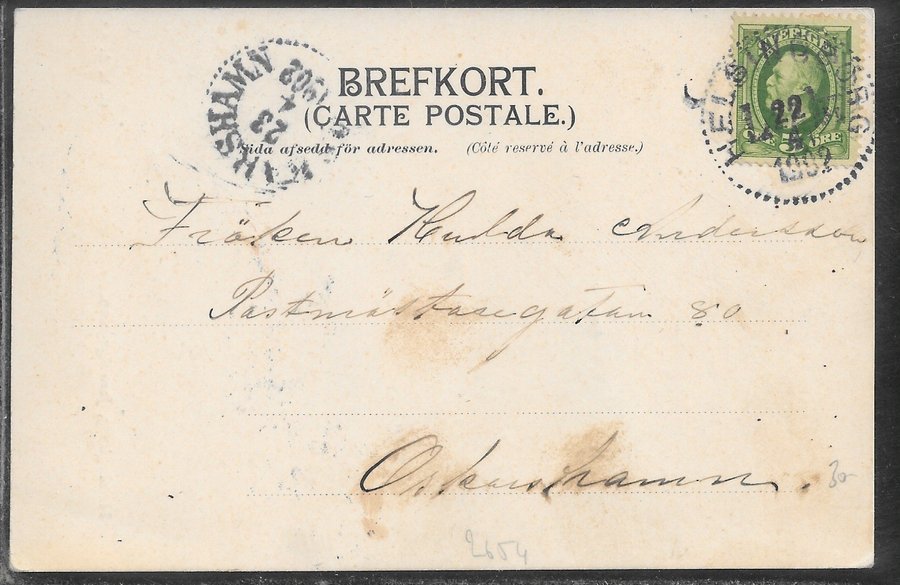 BREFKORT.
(CARTE POSTALE.)
Sida afsedd för adressen. (Côté reservé à l'adresse.)
SVERIGE
5 ÖRE
HELSINGBORG
22
1902
KARSHAMN
23
1902
Fröken Hulda Andersson
Postmästaregatan 80
Oskarshamn.
30
2654